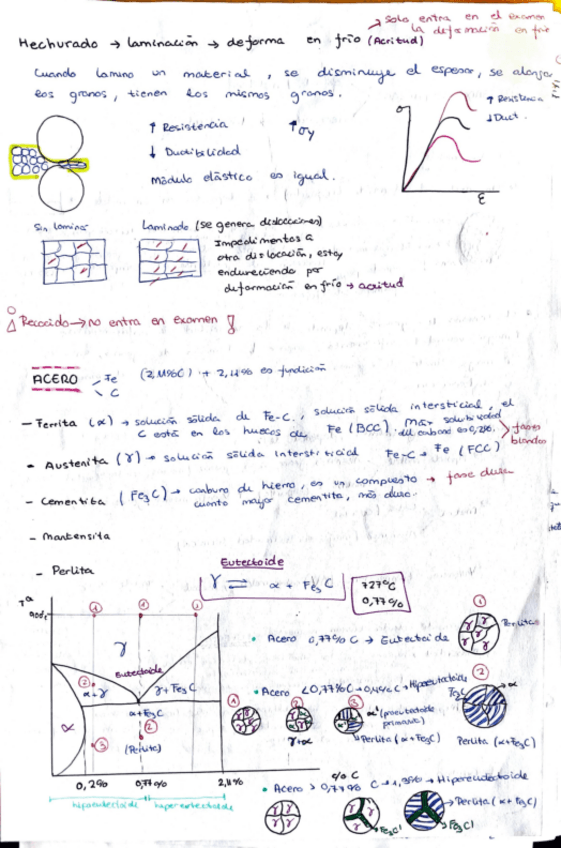 Solo entra en el examen
la deformación en frío
Hechurado → laminación → deforma en frío (Acritud)
Cuando lamino un material, se disminuye el espesor, se alargan
los granos, tienen los mismos granos.
↑ Resistencia ↑σy
↓ Ductibilidad
Módulo elástico es igual.
σ
↑ Resistencia
↓ Duct.
ε
Sin laminar
Laminado (se genera dislocaciones)
Impedimentos a
otra dislocación, estoy
endureciendo por
deformación en frío → acritud
Recocido → no entra en examen !
ACERO
Fe
C
(2,11%C) + 2,11% es fundición
- Ferrita (α) → solución sólida de Fe-C, solución sólida intersticial, el
C está en los huecos de Fe (BCC). Max solubilidad
del carbono es 0,2%.
fases
blandas
- Austenita (γ) → solución sólida intersticial Fe-C → Fe (FCC)
- Cementita (Fe3C) → carburo de hierro, es un compuesto → fase dura
cuanto mayor cementita, más dura.
- Martensita
- Perlita
Eutectoide
γ ⇌ α + Fe3C
727ºC
0,77%
Tª
γ
Eutectoide
α+γ
γ+Fe3C
α+Fe3C
α
(Perlita)
0,2%
0,77%
2,11%
%C
hipoeutectoide
hipereutectoide
• Acero 0,77% C → Eutectoide
Perlita
• Acero <0,77%C → 0,4%C → Hipoeutectoide
γ+α
α (proeutectoide
primario)
Perlita (α+Fe3C)
Fe3C
α
Perlita (α+Fe3C)
• Acero > 0,77% C → 1,3% → Hipereutectoide
Fe3C
Perlita (α+Fe3C)
Fe3C